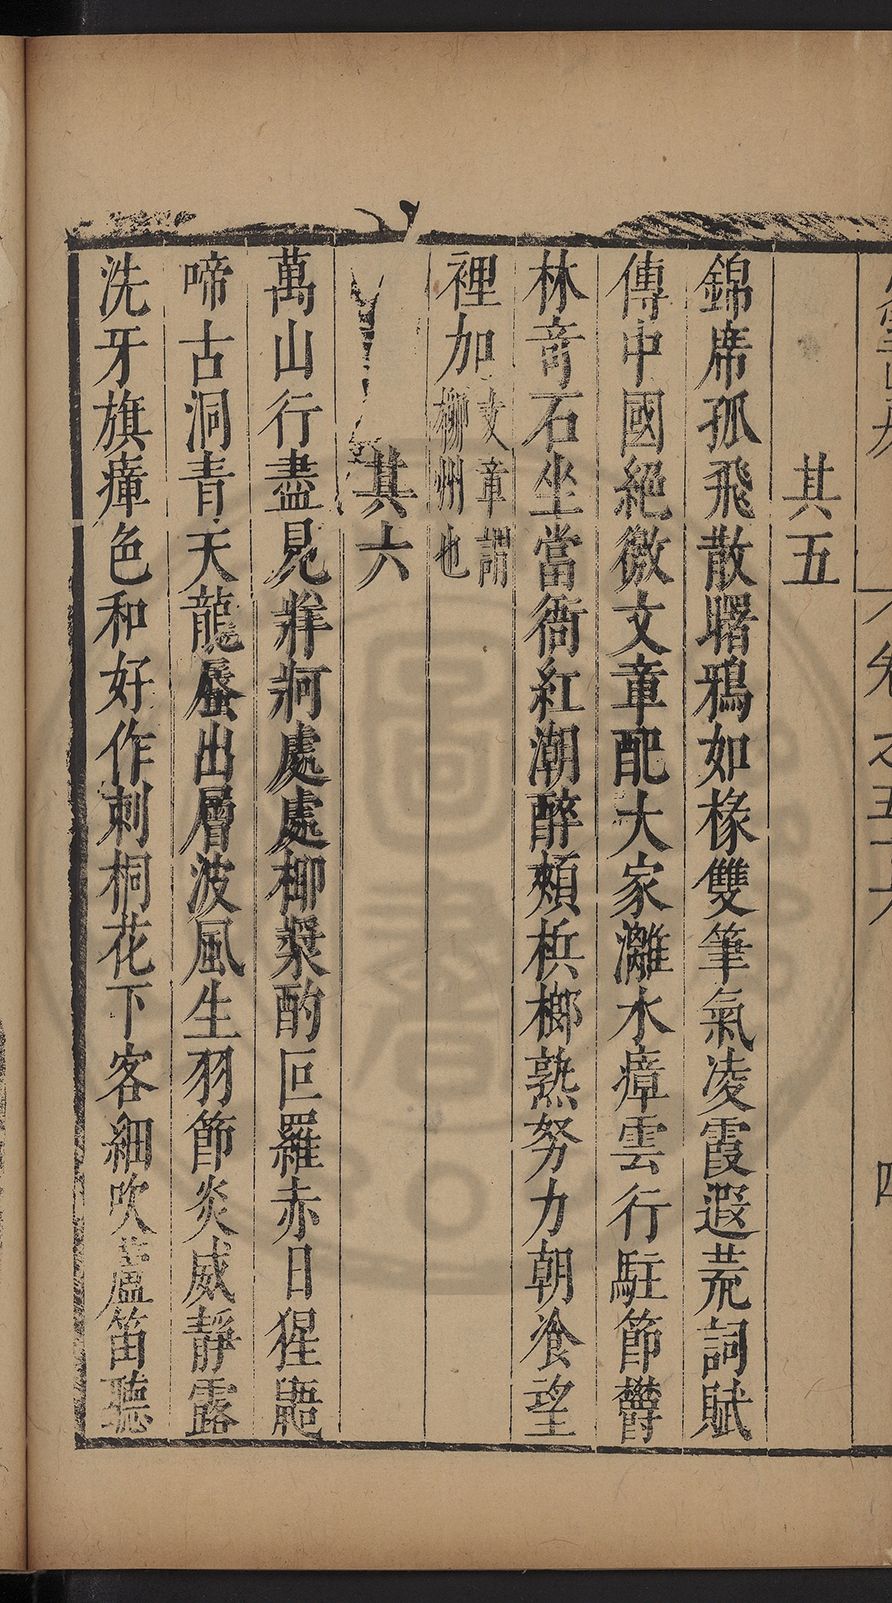 卷之五十六
四
其五
錦席孤飛散曙鴉如椽雙筆氣凌霞遐荒詞賦
傳中國絕徼文章配大家灕水瘴雲行駐節欝
林竒石坐當衙紅潮醉頰梹榔熟努力朝飡望
裡加文章謂柳州也
其六
萬山行盡見牂牁處處椰漿酌叵羅赤日猩鼯
啼古洞青天龍蜃出層波風生羽節炎威靜露
洗牙旗瘴色和好作刺桐花下客細吹蘆笛聽